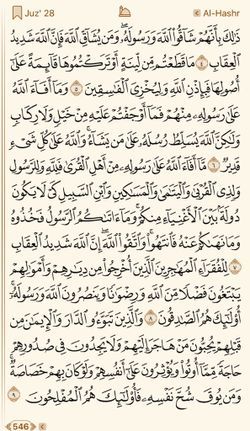 Juz' 28
Al-Hashr
ذَٰلِكَ بِأَنَّهُمْ شَاقُّوا۟ ٱللَّهَ وَرَسُولَهُۥ ۖ وَمَن يُشَآقِّ ٱللَّهَ فَإِنَّ ٱللَّهَ شَدِيدُ
ٱلْعِقَابِ ٤ مَا قَطَعْتُم مِّن لِّينَةٍ أَوْ تَرَكْتُمُوهَا قَآئِمَةً عَلَىٰٓ
أُصُولِهَا فَبِإِذْنِ ٱللَّهِ وَلِيُخْزِىَ ٱلْفَـٰسِقِينَ ٥ وَمَآ أَفَآءَ ٱللَّهُ
عَلَىٰ رَسُولِهِۦ مِنْهُمْ فَمَآ أَوْجَفْتُمْ عَلَيْهِ مِنْ خَيْلٍ وَلَا رِكَابٍ
وَلَـٰكِنَّ ٱللَّهَ يُسَلِّطُ رُسُلَهُۥ عَلَىٰ مَن يَشَآءُ ۚ وَٱللَّهُ عَلَىٰ كُلِّ شَىْءٍ
قَدِيرٌ ٦ مَّآ أَفَآءَ ٱللَّهُ عَلَىٰ رَسُولِهِۦ مِنْ أَهْلِ ٱلْقُرَىٰ فَلِلَّهِ وَلِلرَّسُولِ
وَلِذِى ٱلْقُرْبَىٰ وَٱلْيَتَـٰمَىٰ وَٱلْمَسَـٰكِينِ وَٱبْنِ ٱلسَّبِيلِ كَىْ لَا يَكُونَ
دُولَةًۢ بَيْنَ ٱلْأَغْنِيَآءِ مِنكُمْ ۚ وَمَآ ءَاتَىٰكُمُ ٱلرَّسُولُ فَخُذُوهُ
وَمَا نَهَىٰكُمْ عَنْهُ فَٱنتَهُوا۟ ۚ وَٱتَّقُوا۟ ٱللَّهَ ۖ إِنَّ ٱللَّهَ شَدِيدُ ٱلْعِقَابِ
٧ لِلْفُقَرَآءِ ٱلْمُهَـٰجِرِينَ ٱلَّذِينَ أُخْرِجُوا۟ مِن دِيَـٰرِهِمْ وَأَمْوَٰلِهِمْ
يَبْتَغُونَ فَضْلًا مِّنَ ٱللَّهِ وَرِضْوَٰنًا وَيَنصُرُونَ ٱللَّهَ وَرَسُولَهُۥٓ ۚ
أُو۟لَـٰٓئِكَ هُمُ ٱلصَّـٰدِقُونَ ٨ وَٱلَّذِينَ تَبَوَّءُو ٱلدَّارَ وَٱلْإِيمَـٰنَ مِن
قَبْلِهِمْ يُحِبُّونَ مَنْ هَاجَرَ إِلَيْهِمْ وَلَا يَجِدُونَ فِى صُدُورِهِمْ
حَاجَةً مِّمَّآ أُوتُوا۟ وَيُؤْثِرُونَ عَلَىٰٓ أَنفُسِهِمْ وَلَوْ كَانَ بِهِمْ خَصَاصَةٌ ۚ
وَمَن يُوقَ شُحَّ نَفْسِهِۦ فَأُو۟لَـٰٓئِكَ هُمُ ٱلْمُفْلِحُونَ ٩
546